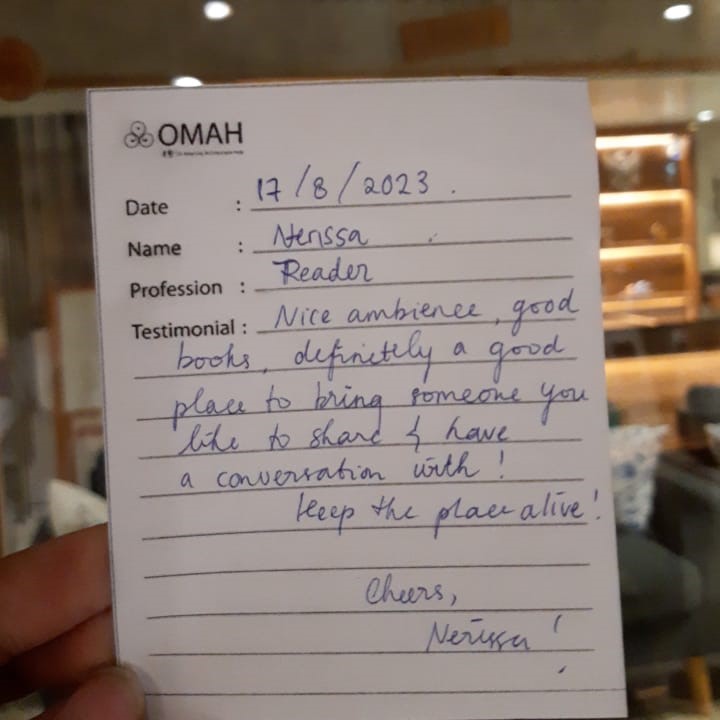 OMAH
Date : 17/8/2023.
Name : Nerissa
Profession : Reader
Testimonial : Nice ambience, good
books, definitely a good
place to bring someone you
like to share & have
a conversation with!
Keep the place alive!
Cheers,
Nerissa!